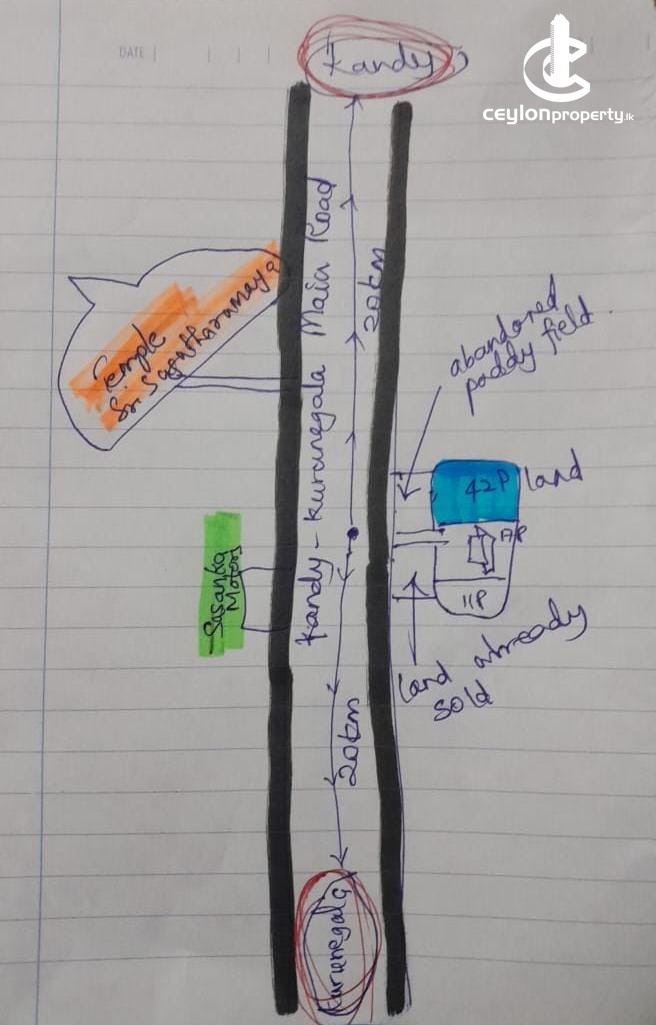 DATE
CEYLONproperty.lk
Kandy
Kandy - Kurunegala Main Road
20km
Temple
abandoned
paddy field
42P
land
11P
Sasanka
Motors
land already
sold
20km
Kurunegala